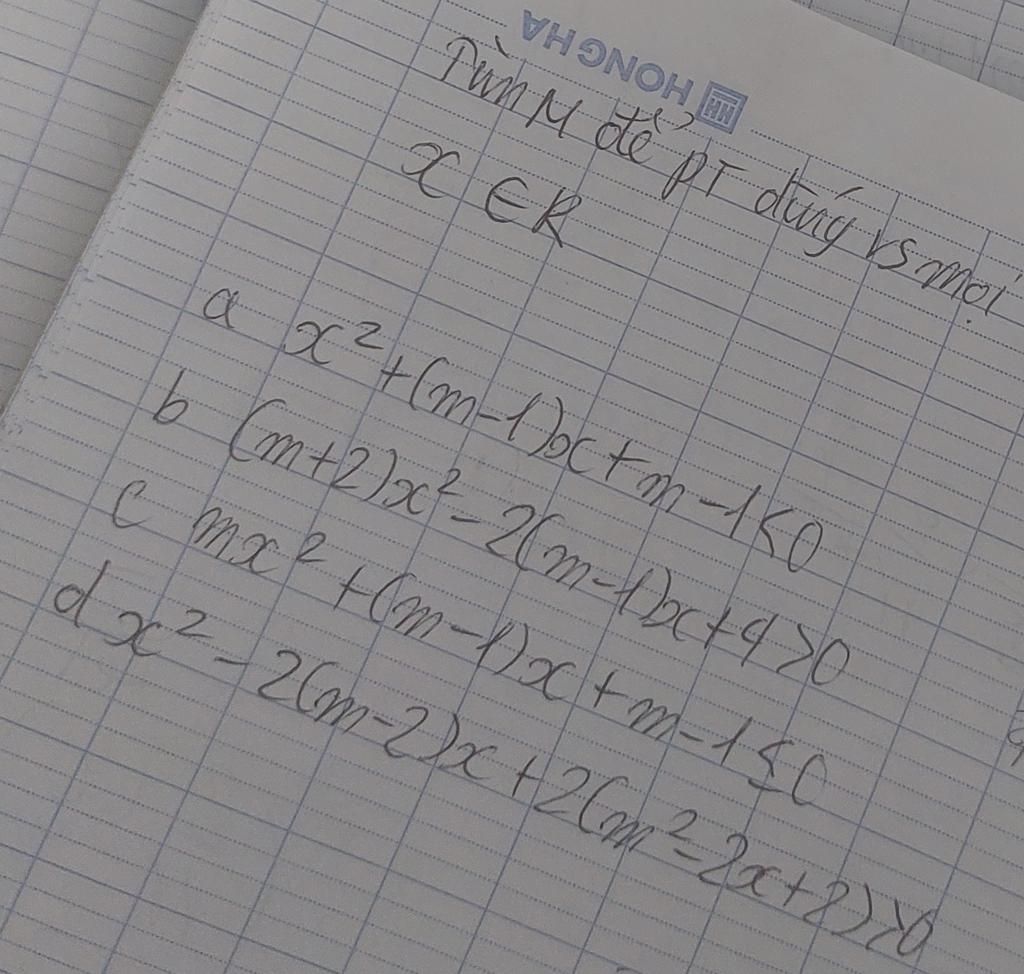 HONG HA
Tìm M để pt đúng vs mọi
x ∈ R
a x² + (m-1)x + m - 1 < 0
b (m+2)x² - 2(m-1)x + 4 > 0
c mx² + (m-1)x + m - 1 ≤ 0
d x² - 2(m-2)x + 2(m² - 2x + 2) ≥ 0